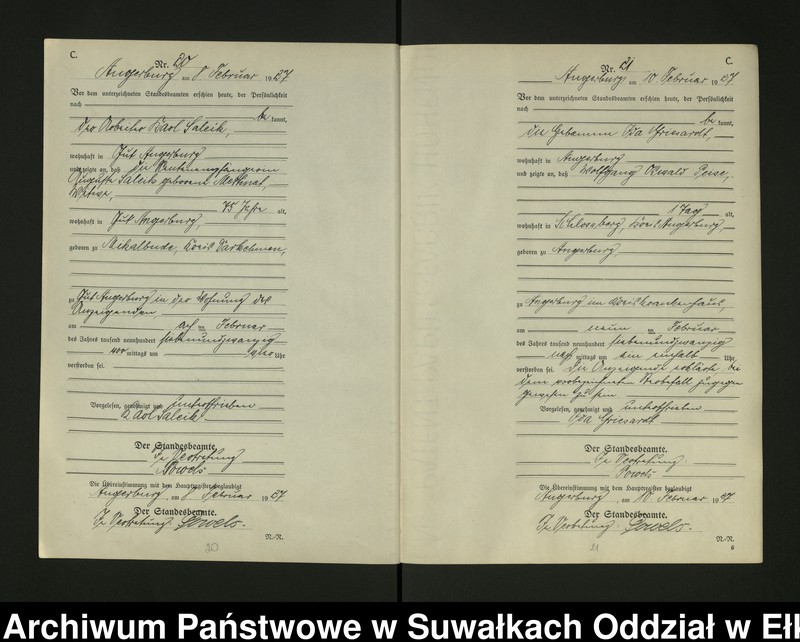 C.
Nr. 20
Angerburg am 8 Februar 1927
Vor dem unterzeichneten Standesbeamten erschien heute, der Persönlichkeit
nach
be kannt,
der Arbeiter Karl Saleik,
wohnhaft in Gut Angerburg
und zeigte an, daß die Rentenempfängerin
Auguste Saleik geborene
Witwe,
75 Jahre alt,
wohnhaft in Gut Angerburg,
geboren zu Kreis Darkehmen,
zu Gut Angerburg in der Wohnung des
Anzeigenden
am acht ten Februar
des Jahres tausend neunhundert siebenundzwanzig
vor mittags um Uhr
verstorben sei.
Vorgelesen, genehmigt und unterschrieben
Karl Saleik.
Der Standesbeamte.
In Vertretung
Die Übereinstimmung mit dem Hauptregister beglaubigt
Angerburg, am 8 Februar 1927
Der Standesbeamte.
In Vertretung:
N.-N.
20
C.
Nr. 21
Angerburg am 10 Februar 1927
Vor dem unterzeichneten Standesbeamten erschien heute, der Persönlichkeit
nach
be kannt,
die Hebamme Ida Griesardt,
wohnhaft in Angerburg
und zeigte an, daß Wolfgang Oswald
1 Tag alt,
wohnhaft in Schlossberg, Kreis Angerburg,
geboren zu Angerburg
zu Angerburg im Kreiskrankenhaus,
am neun ten Februar
des Jahres tausend neunhundert siebenundzwanzig
nach mittags um ein einhalb Uhr,
verstorben sei. Die Anzeigende erklärte, bei
dem vorbezeichneten Sterbefall zugegen
gewesen zu sein.
Vorgelesen, genehmigt und unterschrieben
Ida Griesardt
Der Standesbeamte.
In Vertretung:
Die Übereinstimmung mit dem Hauptregister beglaubigt
Angerburg, am 10 Februar 1927
Der Standesbeamte.
In Vertretung:
N.-N.
6
21
Archiwum Państwowe w Suwałkach Oddział w Eł